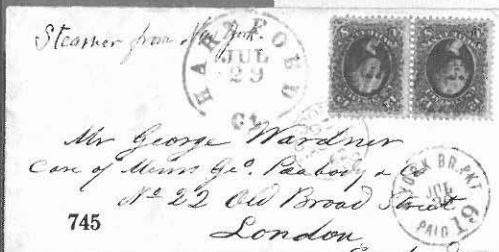 Steamer from New York.
HARTFORD
JUL
29
Ct.
Mr George Wardner
Care of Messrs Geo. Peabody & Co
No 22 Old Broad Street
London
YORK BR. PKT
JUL
PAID 19
745